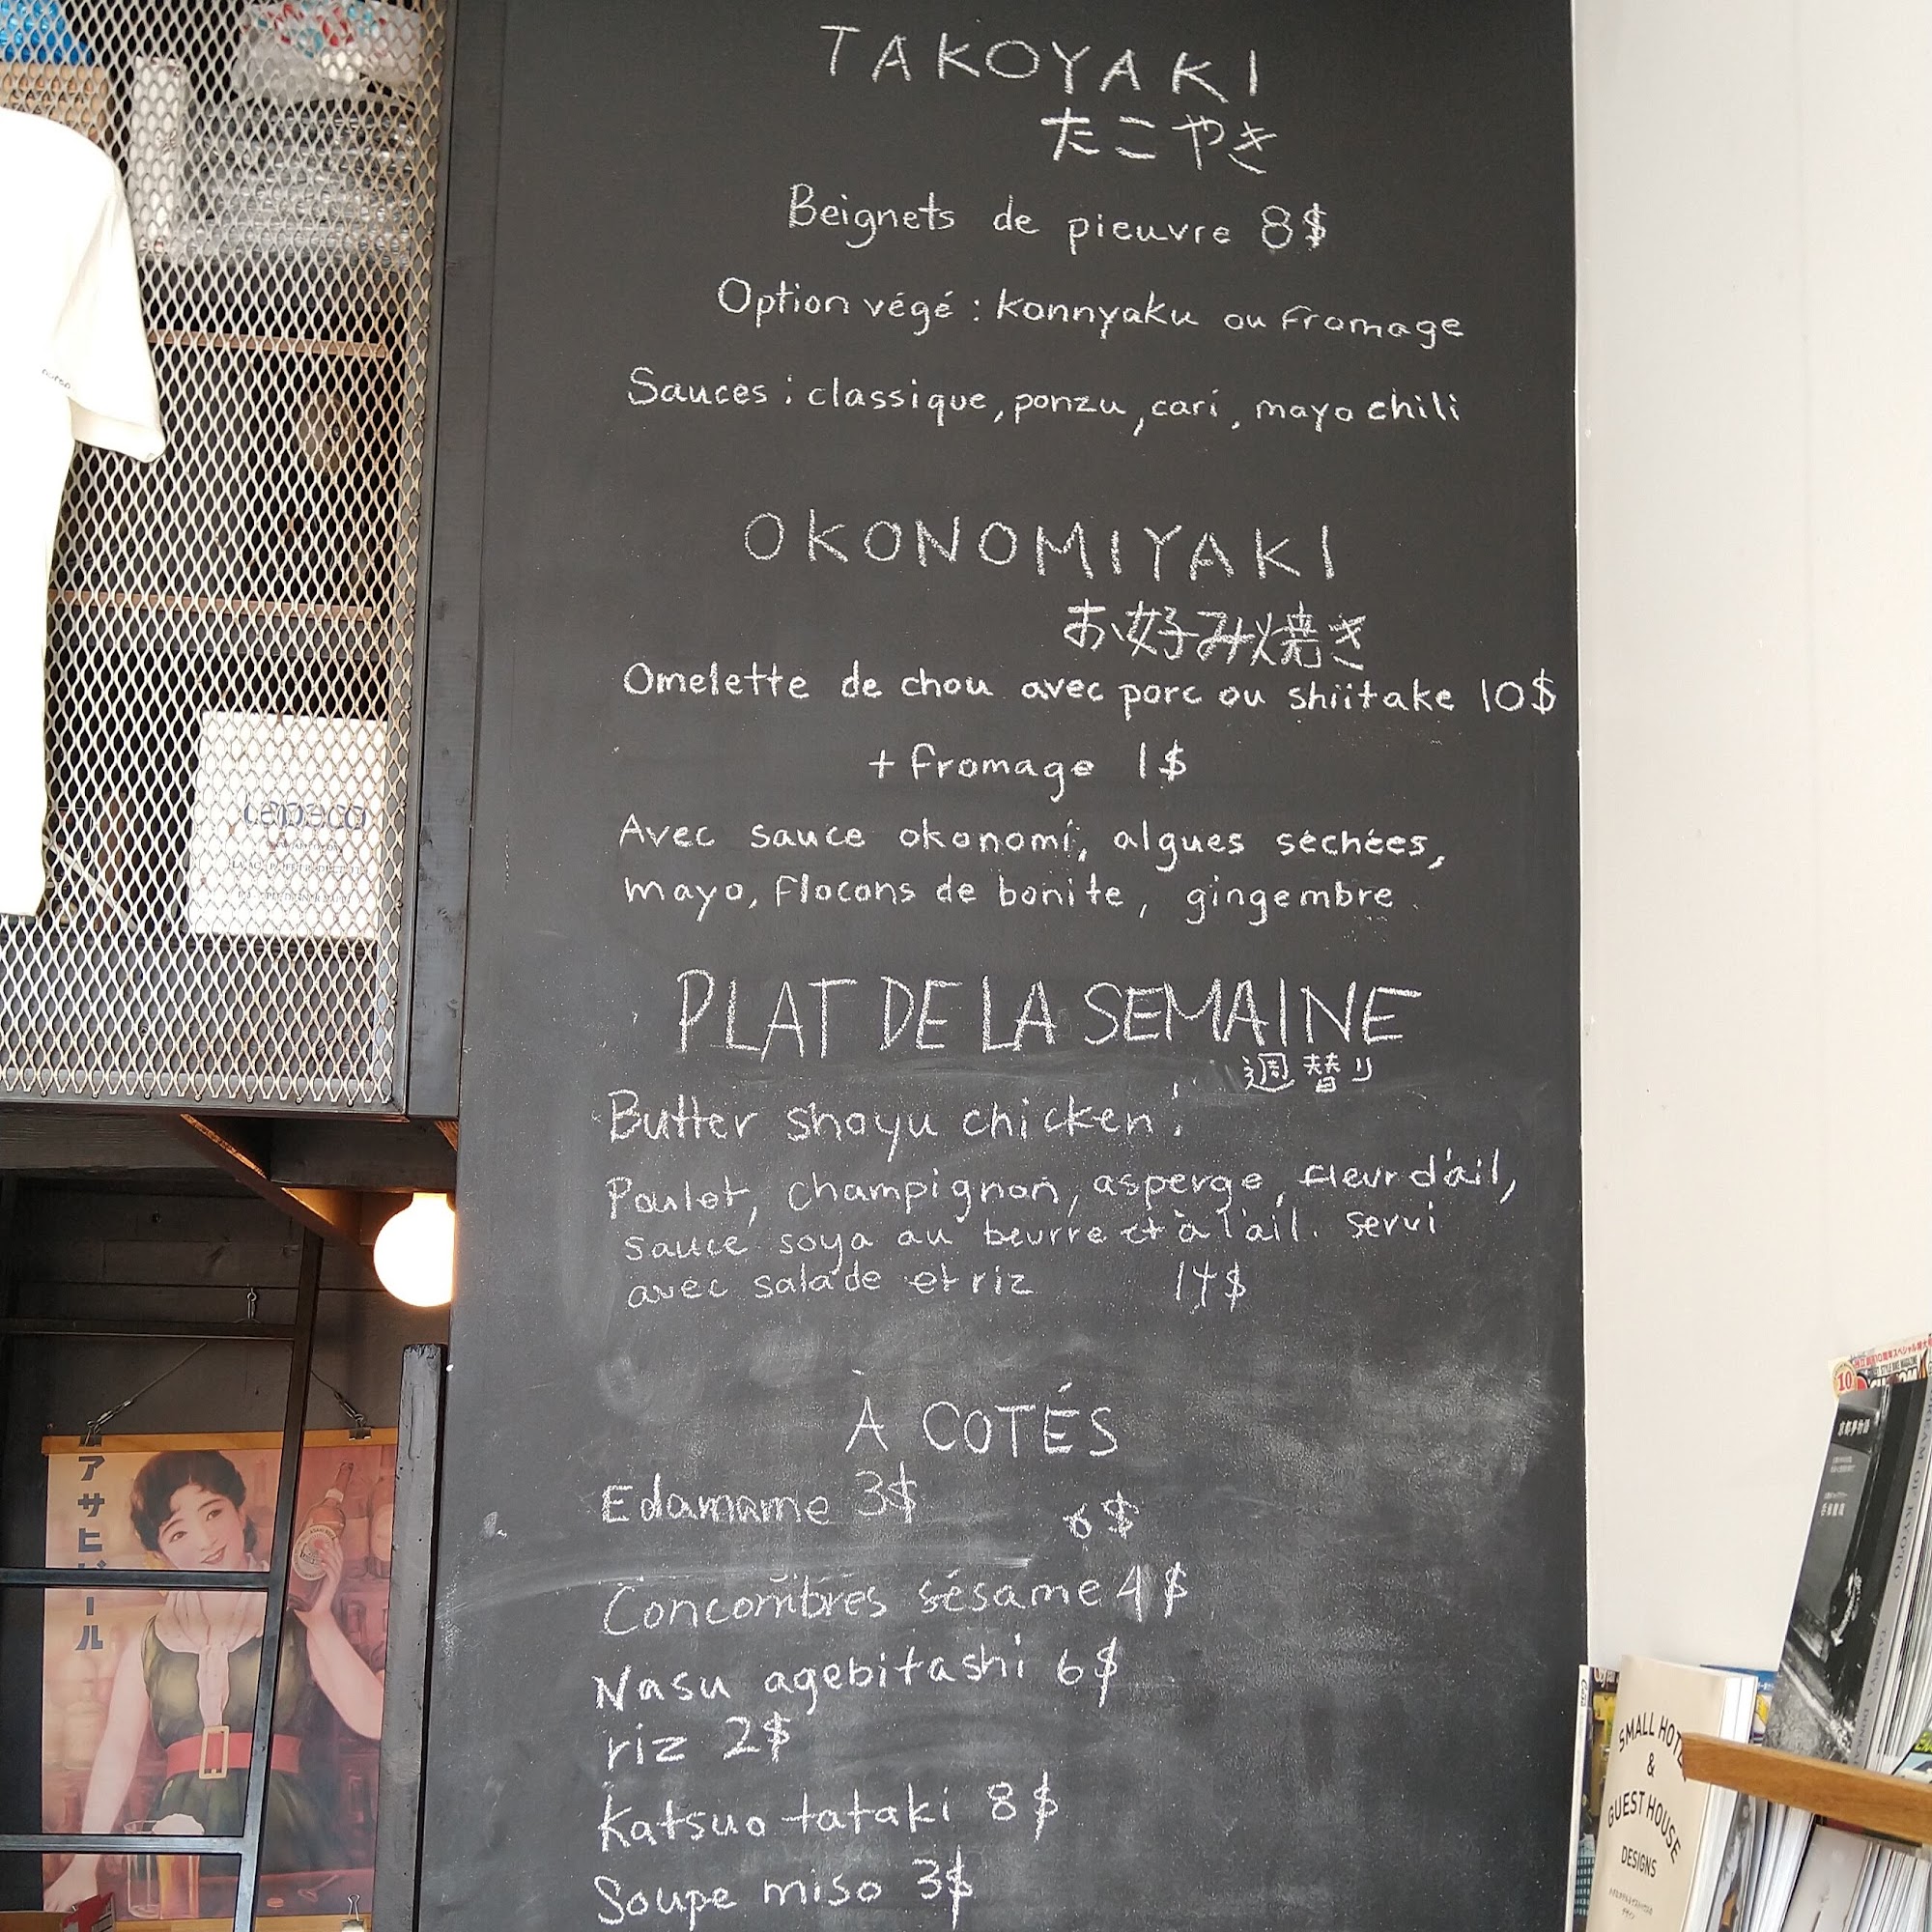 TAKOYAKI
たこやき
Beignets de pieuvre 8$
Option végé : konnyaku ou fromage
Sauces : classique, ponzu, cari, mayo chili
OKONOMIYAKI
お好み焼き
Omelette de chou avec porc ou shiitake 10$
+ fromage 1$
Avec sauce okonomi, algues séchées,
mayo, flocons de bonite, gingembre
PLAT DE LA SEMAINE
週替り
Butter shoyu chicken :
Poulet, champignon, asperge, fleur d'ail,
sauce soya au beurre et à l'ail. servi
avec salade et riz 14$
À COTÉS
Edamame 3$
6$
Concombres sésame 4$
Nasu agebitashi 6$
riz 2$
Katsuo tataki 8$
Soupe miso 3$
アサヒビール
10
SMALL HOTEL
&
GUEST HOUSE
DESIGNS